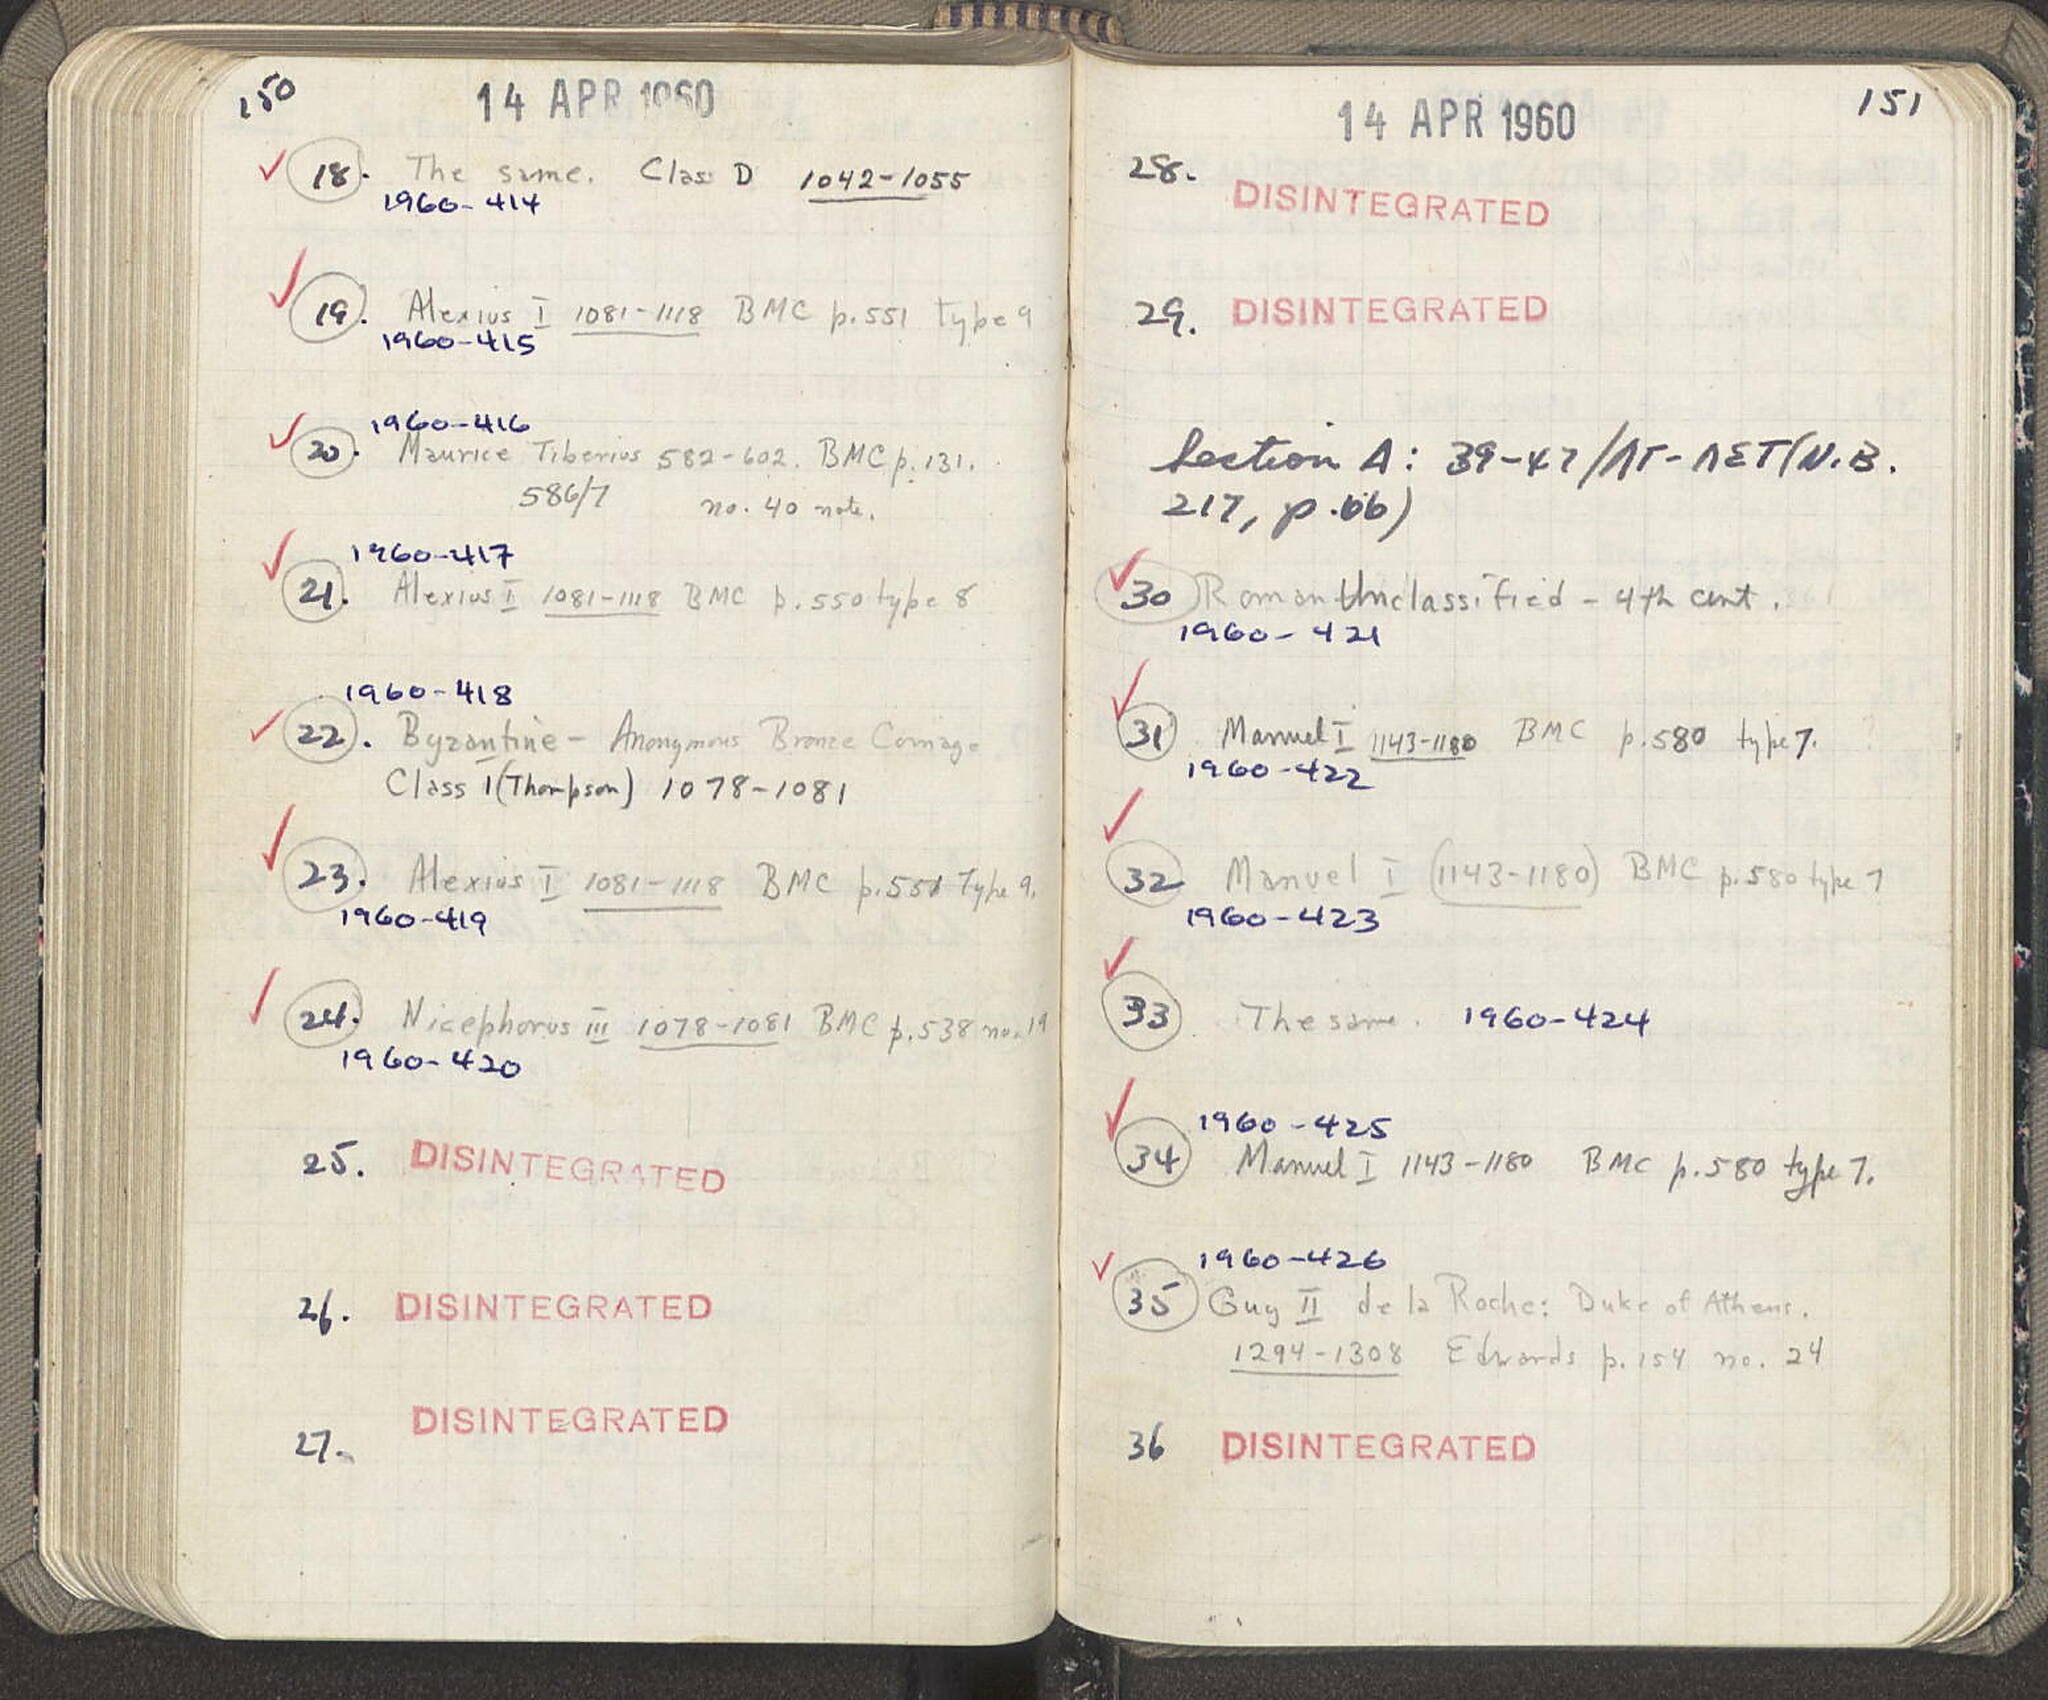 150
14 APR 1960
18. The same. Class D 1042-1055
1960-414
19. Alexius I 1081-1118 BMC p.551 type 9
1960-415
1960-416
20. Maurice Tiberius 582-602. BMC p.131.
586/7 no. 40 note.
1960-417
21. Alexius I 1081-1118 BMC p.550 type 8
1960-418
22. Byzantine - Anonymous Bronze Coinage
Class I (Thompson) 1078-1081
23. Alexius I 1081-1118 BMC p.551 Type 9.
1960-419
24. Nicephorus III 1078-1081 BMC p.538 no. 19
1960-420
25. DISINTEGRATED
26. DISINTEGRATED
27. DISINTEGRATED
151
14 APR 1960
28. DISINTEGRATED
29. DISINTEGRATED
Section A: 39-47/ΛΓ-ΛΣΤ (N.B.
217, p.66)
30 Roman Unclassified - 4th cent.
1960-421
31 Manuel I 1143-1180 BMC p.580 type 7.
1960-422
32 Manuel I (1143-1180) BMC p.580 type 7
1960-423
33 The same. 1960-424
1960-425
34 Manuel I 1143-1180 BMC p.580 type 7.
1960-426
35 Guy II de la Roche: Duke of Athens.
1294-1308 Edwards p.154 no. 24
36 DISINTEGRATED